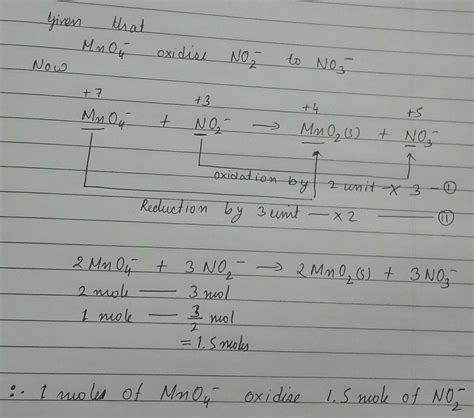 Given that
MnO₄⁻ oxidise NO₂⁻ to NO₃⁻
Now
+7 +3 +4 +5
MnO₄⁻ + NO₂⁻ → MnO₂(s) + NO₃⁻
oxidation by 2 unit × 3 — Ⓘ
Reduction by 3 unit — × 2 — Ⓘⓘ
2MnO₄⁻ + 3NO₂⁻ → 2MnO₂(s) + 3NO₃⁻
2 mole — 3 mol
1 mole — 3/2 mol
= 1.5 moles
∴ 1 moles of MnO₄⁻ oxidise 1.5 mole of NO₂⁻